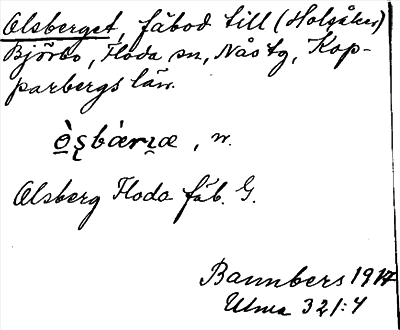 Olsberget, fäbod till (Holsåker)
Björbo, Floda sn, Nås tg, Kop-
parbergs län.
ò̱ʂbàrn̠æ, n.
Olsberg Floda fäb. G.
Bannbers 1917
Ulma 321:4